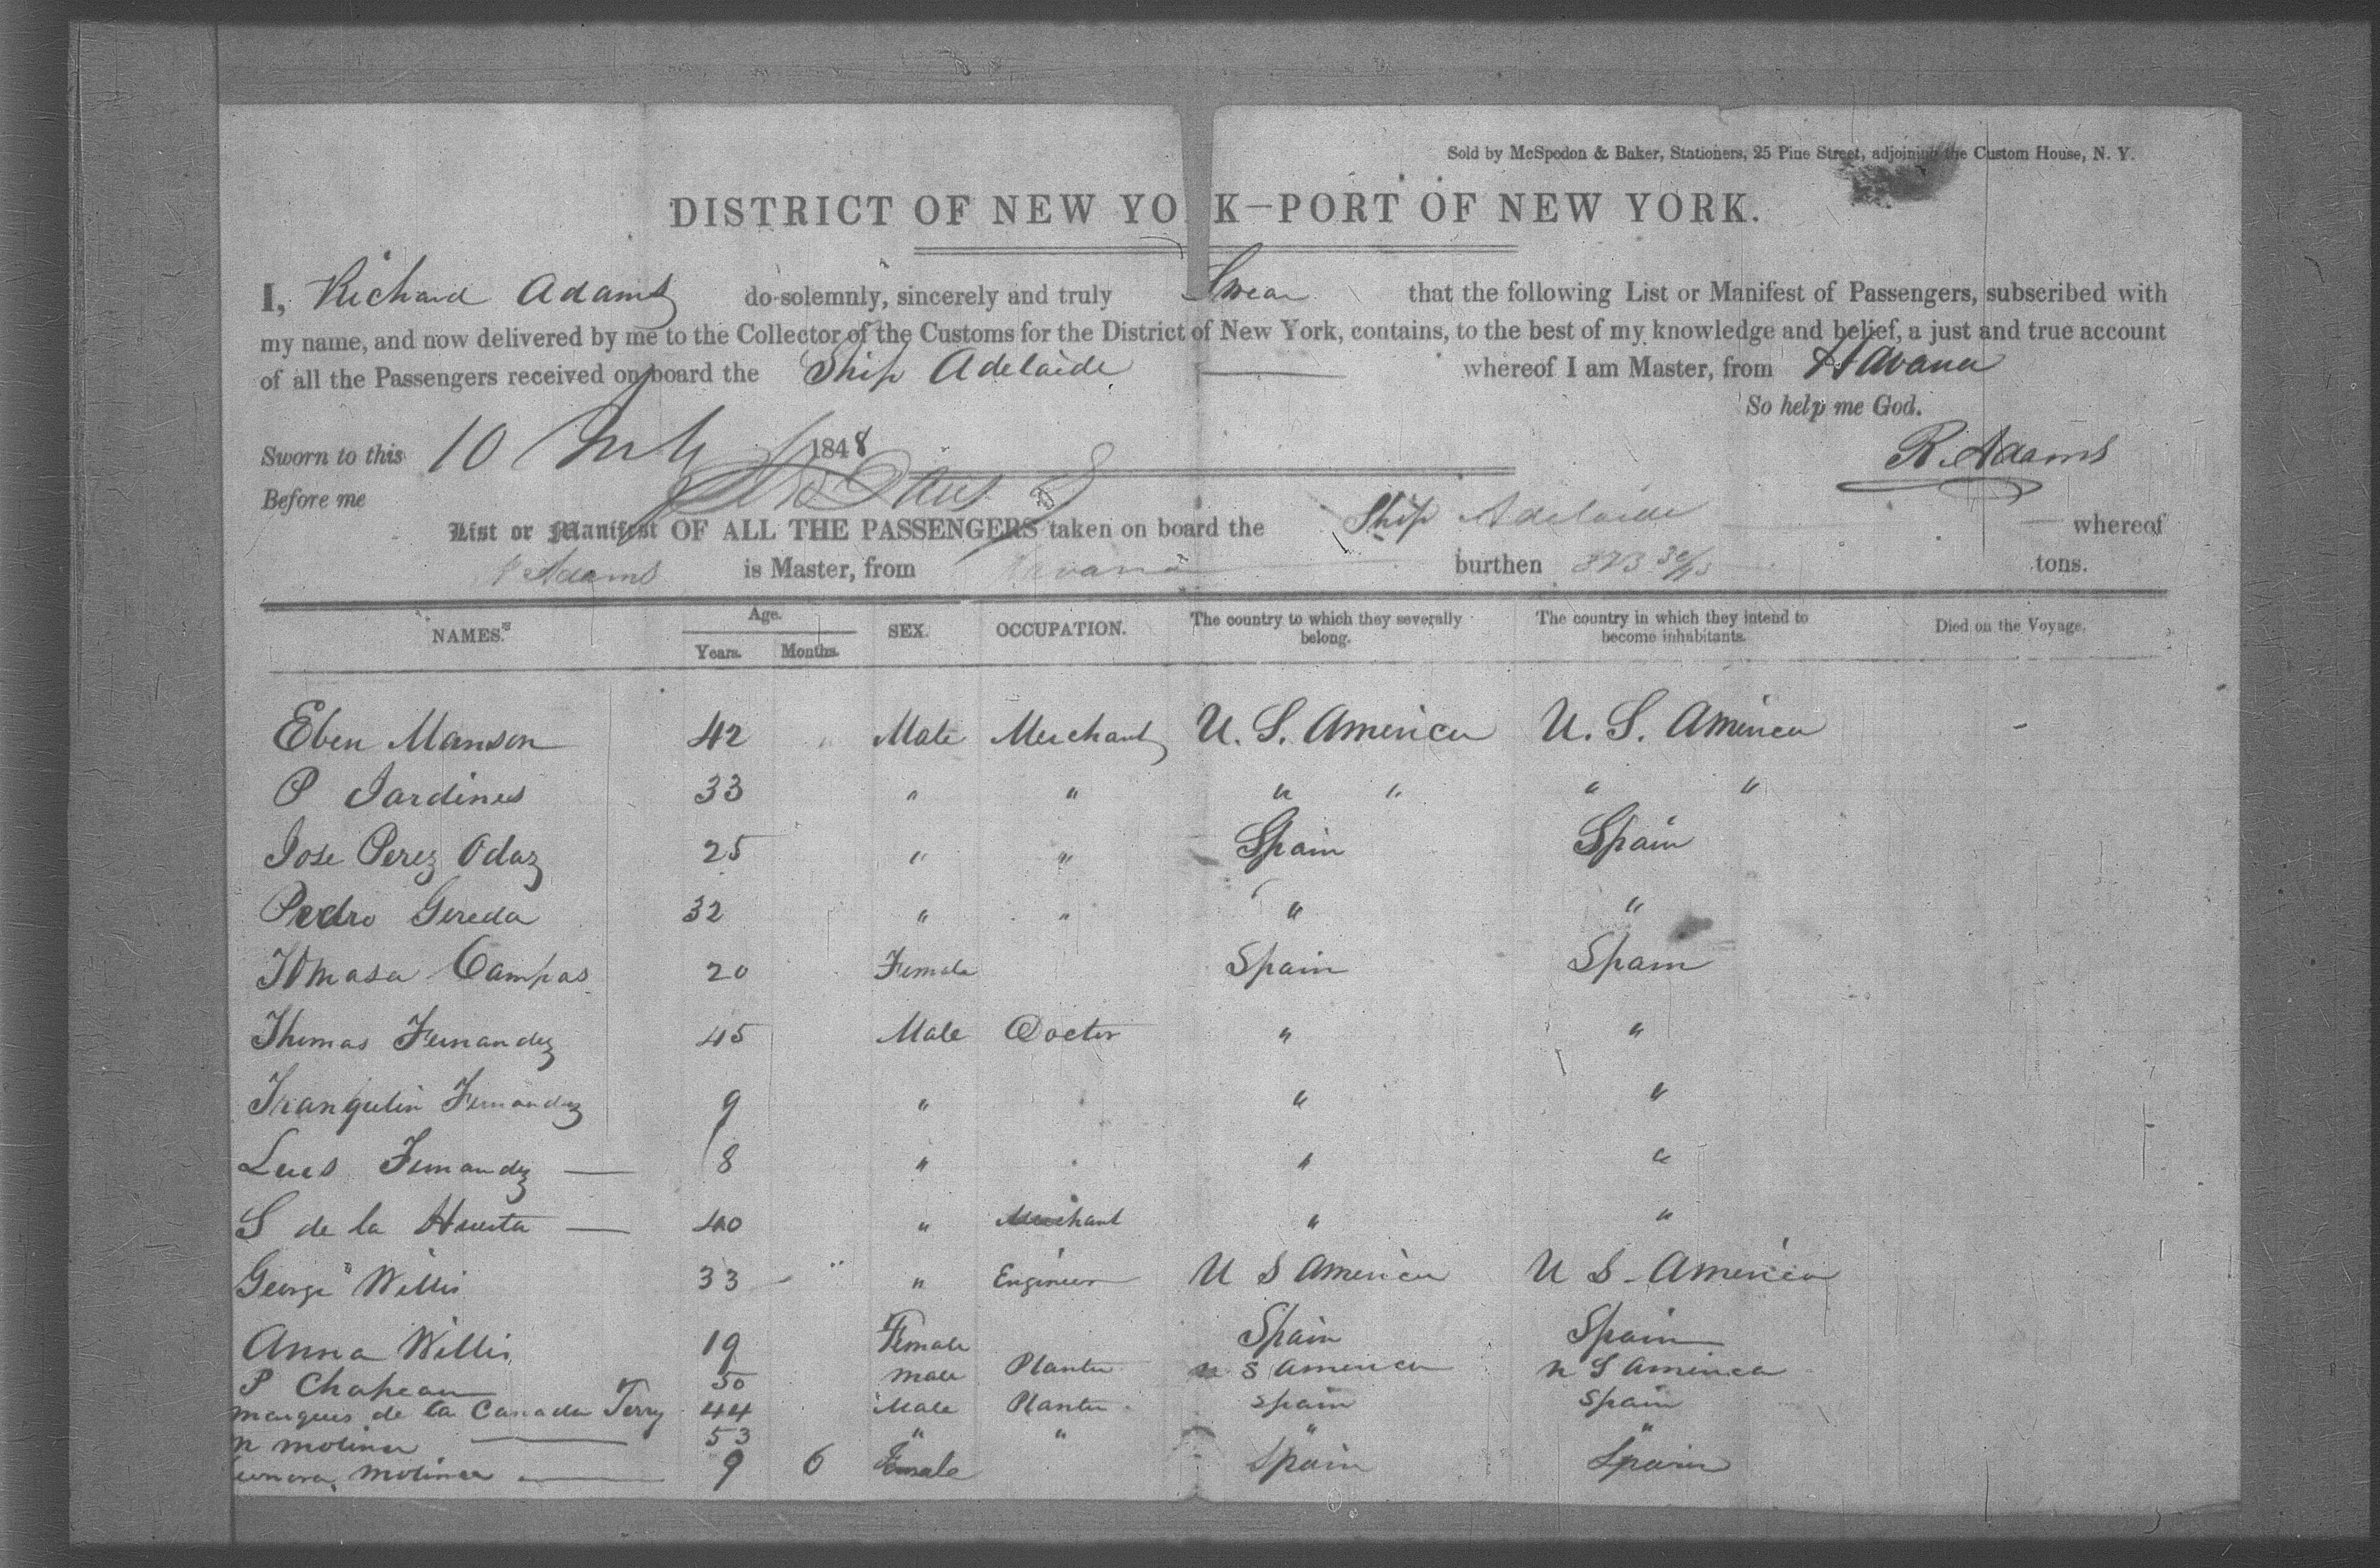 Sold by McSpedon & Baker, Stationers, 25 Pine Street, adjoining the Custom House, N. Y.
DISTRICT OF NEW YO K—PORT OF NEW YORK.
I, Richard Adams do solemnly, sincerely and truly Swear that the following List or Manifest of Passengers, subscribed with
my name, and now delivered by me to the Collector of the Customs for the District of New York, contains, to the best of my knowledge and belief, a just and true account
of all the Passengers received on board the Ship Adelaide whereof I am Master, from Havana
So help me God.
Sworn to this 10 July 1848
R. Adams
Before me
List or Manifest OF ALL THE PASSENGERS taken on board the Ship Adelaide whereof
Adams is Master, from Havana burthen tons.
NAMES. Age. SEX. OCCUPATION. The country to which they severally belong. The country in which they intend to become inhabitants. Died on the Voyage.
Years. Months.
Eben Manson 42 " Male Merchant U. S. America U. S. America -
P Jardines 33 " " " " " "
Jose Perez Odaz 25 " " Spain Spain
Pedro Gereda 32 " " " "
Tomasa Campas 20 Female Spain Spain
Thomas Fernandez 45 Male Doctor " "
Tranquelin Fernandez 9 " " "
Lues Fernandez — 8 " " "
S de la Huerta — 40 " Merchant " "
George Willis 33 - " " Engineer U S America U S - America
Anna Willis 19 Female Spain Spain
P Chapeau 50 Male Planter U S America U S America
Marques de la Canada Terry 44 Male Planter Spain Spain
N Molina — 53 " " " "
Molina — 9 6 Female Spain Spain